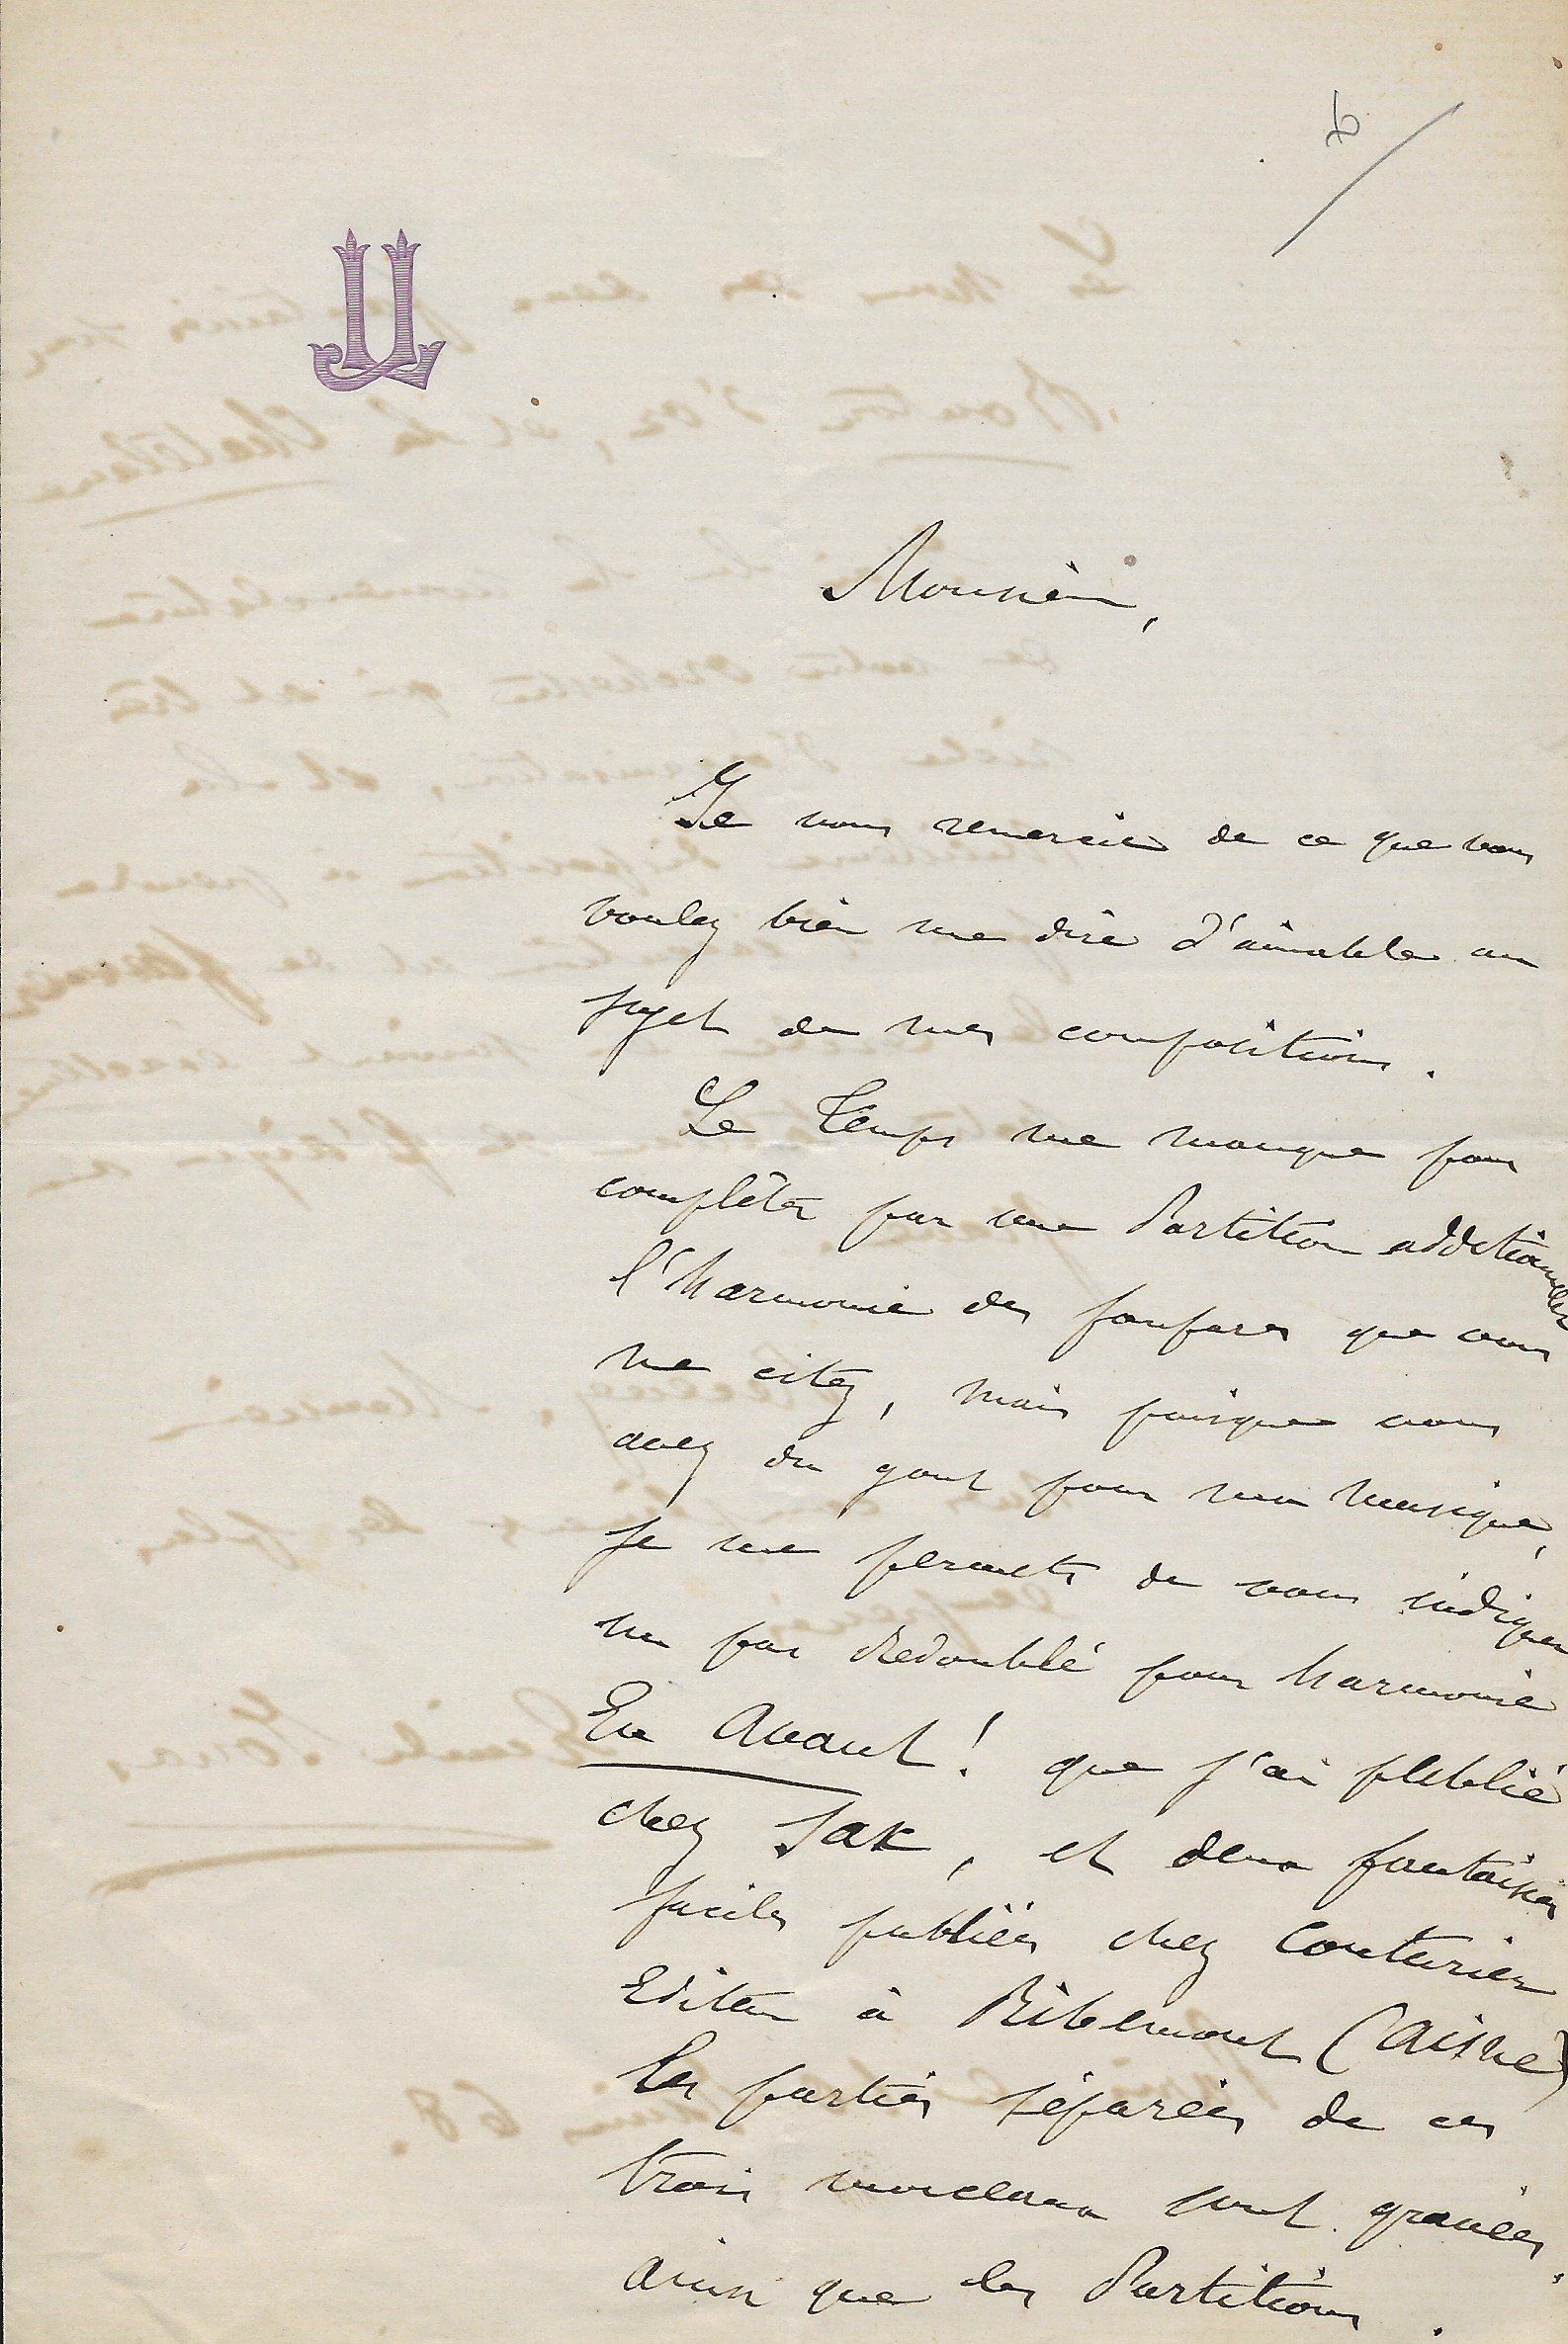 Monsieur,
Je vous remercie de ce que vous
voulez bien me dire d'aimable au
sujet de mes compositions.
Le temps me manque pour
complèter par une Partition additionnelle
l'harmonie des fanfares que vous
me citez, mais puisque vous
avez du gout pour ma musique,
je me permets de vous indiquer
un pas Redoublé pour harmonie
En Avant ! que j'ai publié
chez Sax, et deux fantaisies
faciles publiées chez Couturier
Editeur à Ribemont (Aisne)
Les parties séparées de ces
trois morceaux sont gravées,
ainsi que les Partitions.